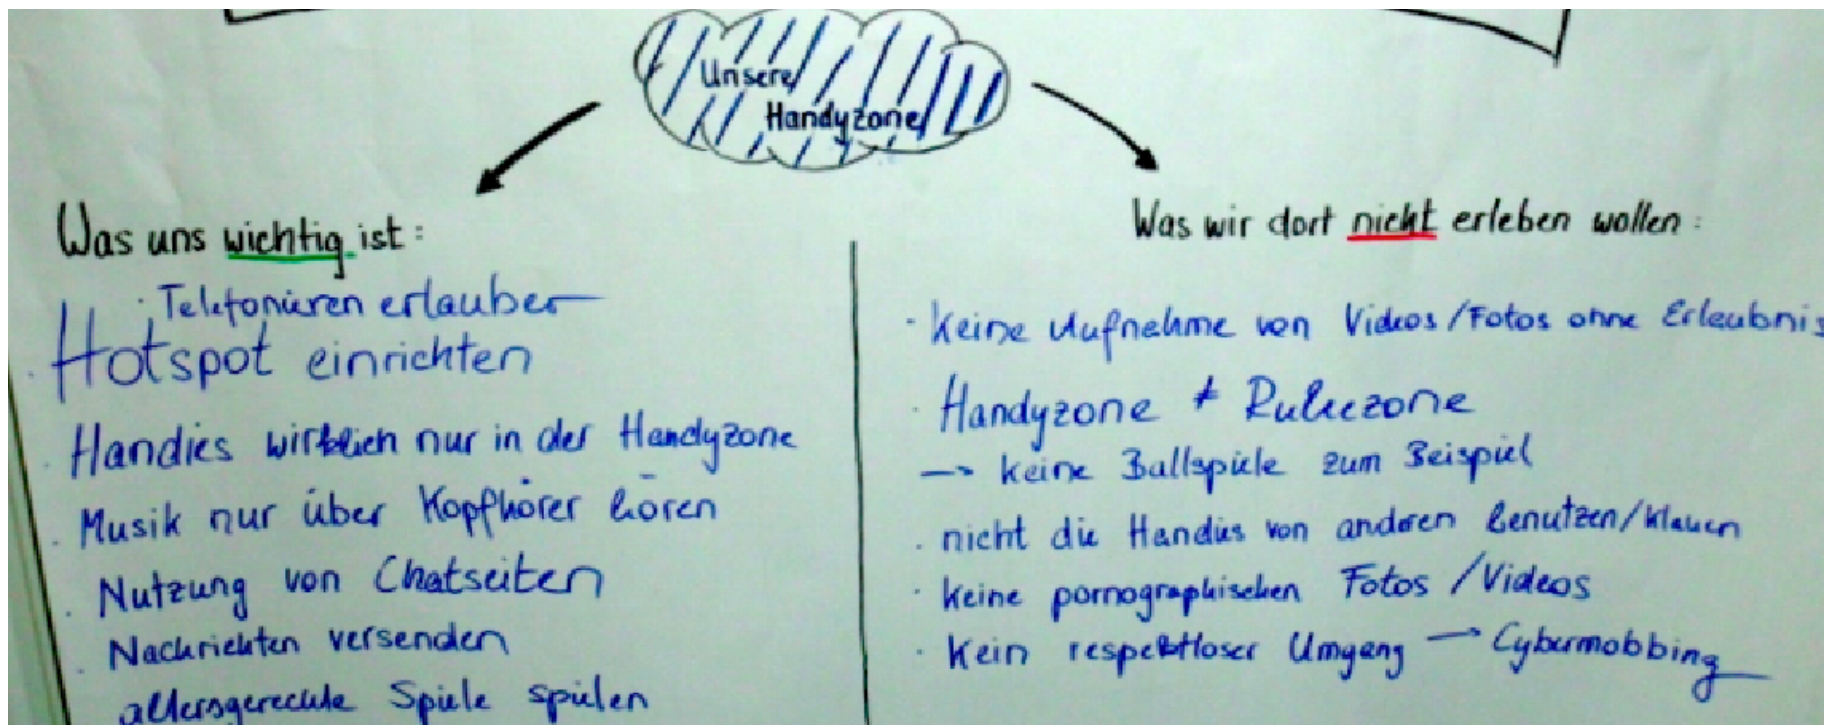 Unsere
Handyzone
Was uns wichtig ist:
· Telefonieren erlauben
· Hotspot einrichten
· Handies wirklich nur in der Handyzone
· Musik nur über Kopfhörer hören
· Nutzung von Chatseiten
· Nachrichten versenden
altersgerechte Spiele spielen
Was wir dort nicht erleben wollen:
· Keine Aufnahme von Videos/Fotos ohne Erlaubnis
· Handyzone ≠ Ruhezone
→ keine Ballspiele zum Beispiel
· nicht die Handies von anderen benutzen/klauen
· keine pornographischen Fotos/Videos
· Kein respektloser Umgang → Cybermobbing